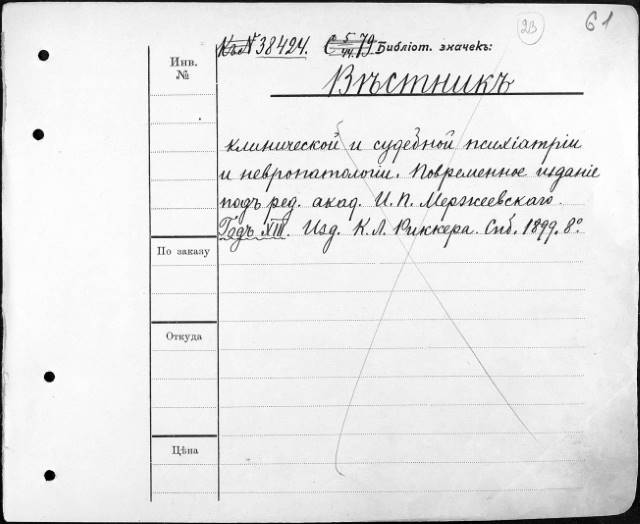 23
61
Къ № 38424. С 5/44 79 Библіот. значекъ:
Инв. №
Вѣстникъ
клинической и судебной психіатріи
и невропатологіи. Повременное изданіе
подъ ред. акад. И. П. Мержеевскаго.
Годъ XIII. Изд. К. Л. Риккера. Спб. 1899. 8°.
По заказу
Откуда
Цѣна